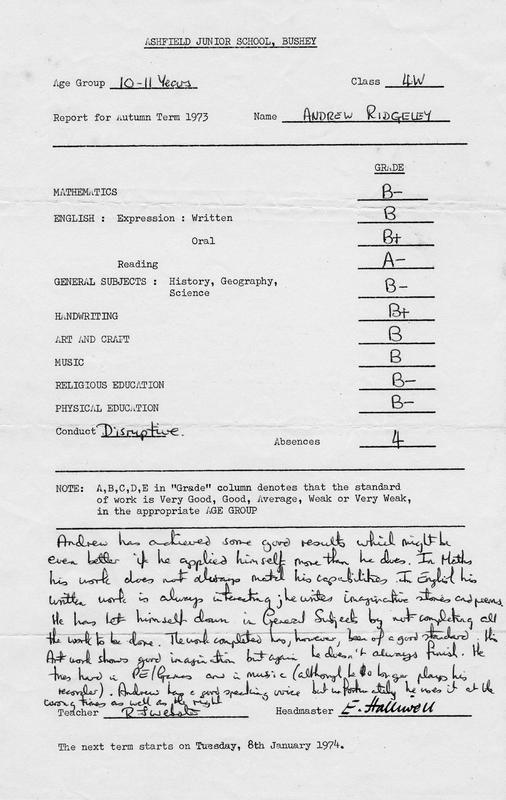 ASHFIELD JUNIOR SCHOOL, BUSHEY
Age Group 10-11 Years Class 4W
Report for Autumn Term 1973 Name ANDREW RIDGELEY
GRADE
MATHEMATICS B-
ENGLISH : Expression : Written B
Oral B+
Reading A-
GENERAL SUBJECTS : History, Geography, B-
Science
HANDWRITING B+
ART AND CRAFT B
MUSIC B
RELIGIOUS EDUCATION B-
PHYSICAL EDUCATION B-
Conduct Disruptive. Absences 4
NOTE: A,B,C,D,E in "Grade" column denotes that the standard
of work is Very Good, Good, Average, Weak or Very Weak,
in the appropriate AGE GROUP
Andrew has achieved some good results which might be
even better if he applied himself more than he does. In Maths
his work does not always match his capabilities. In English his
written work is always interesting; he writes imaginative stories and poems.
He has let himself down in General Subjects by not completing all
the work to be done. The work completed has, however, been of a good standard. His
Art work shows good imagination but again he doesn't always finish. He
tries hard in PE/Games and in music (although he no longer plays his
recorder). Andrew has a good speaking voice but unfortunately he uses it at the
wrong times as well as the right
Teacher Headmaster E. Halliwell
The next term starts on Tuesday, 8th January 1974.